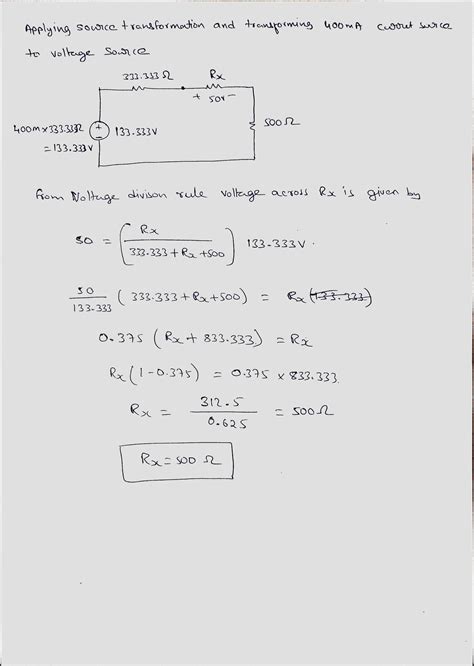 Applying source transformation and transforming 400mA curout surce
to voltage source
333.333 Ω
Rx
+ 50v -
500Ω
400m×333.333Ω
= 133.333V
+
-
133.333V
from Voltage divison rule voltage across Rx is given by
50 = ( Rx / 333.333 + Rx + 500 ) 133.333V.
50 / 133.333 ( 333.333 + Rx + 500 ) = Rx (133.333)
0.375 ( Rx + 833.333 ) = Rx
Rx ( 1 - 0.375 ) = 0.375 × 833.333.
Rx = 312.5 / 0.625 = 500Ω
Rx = 500 Ω